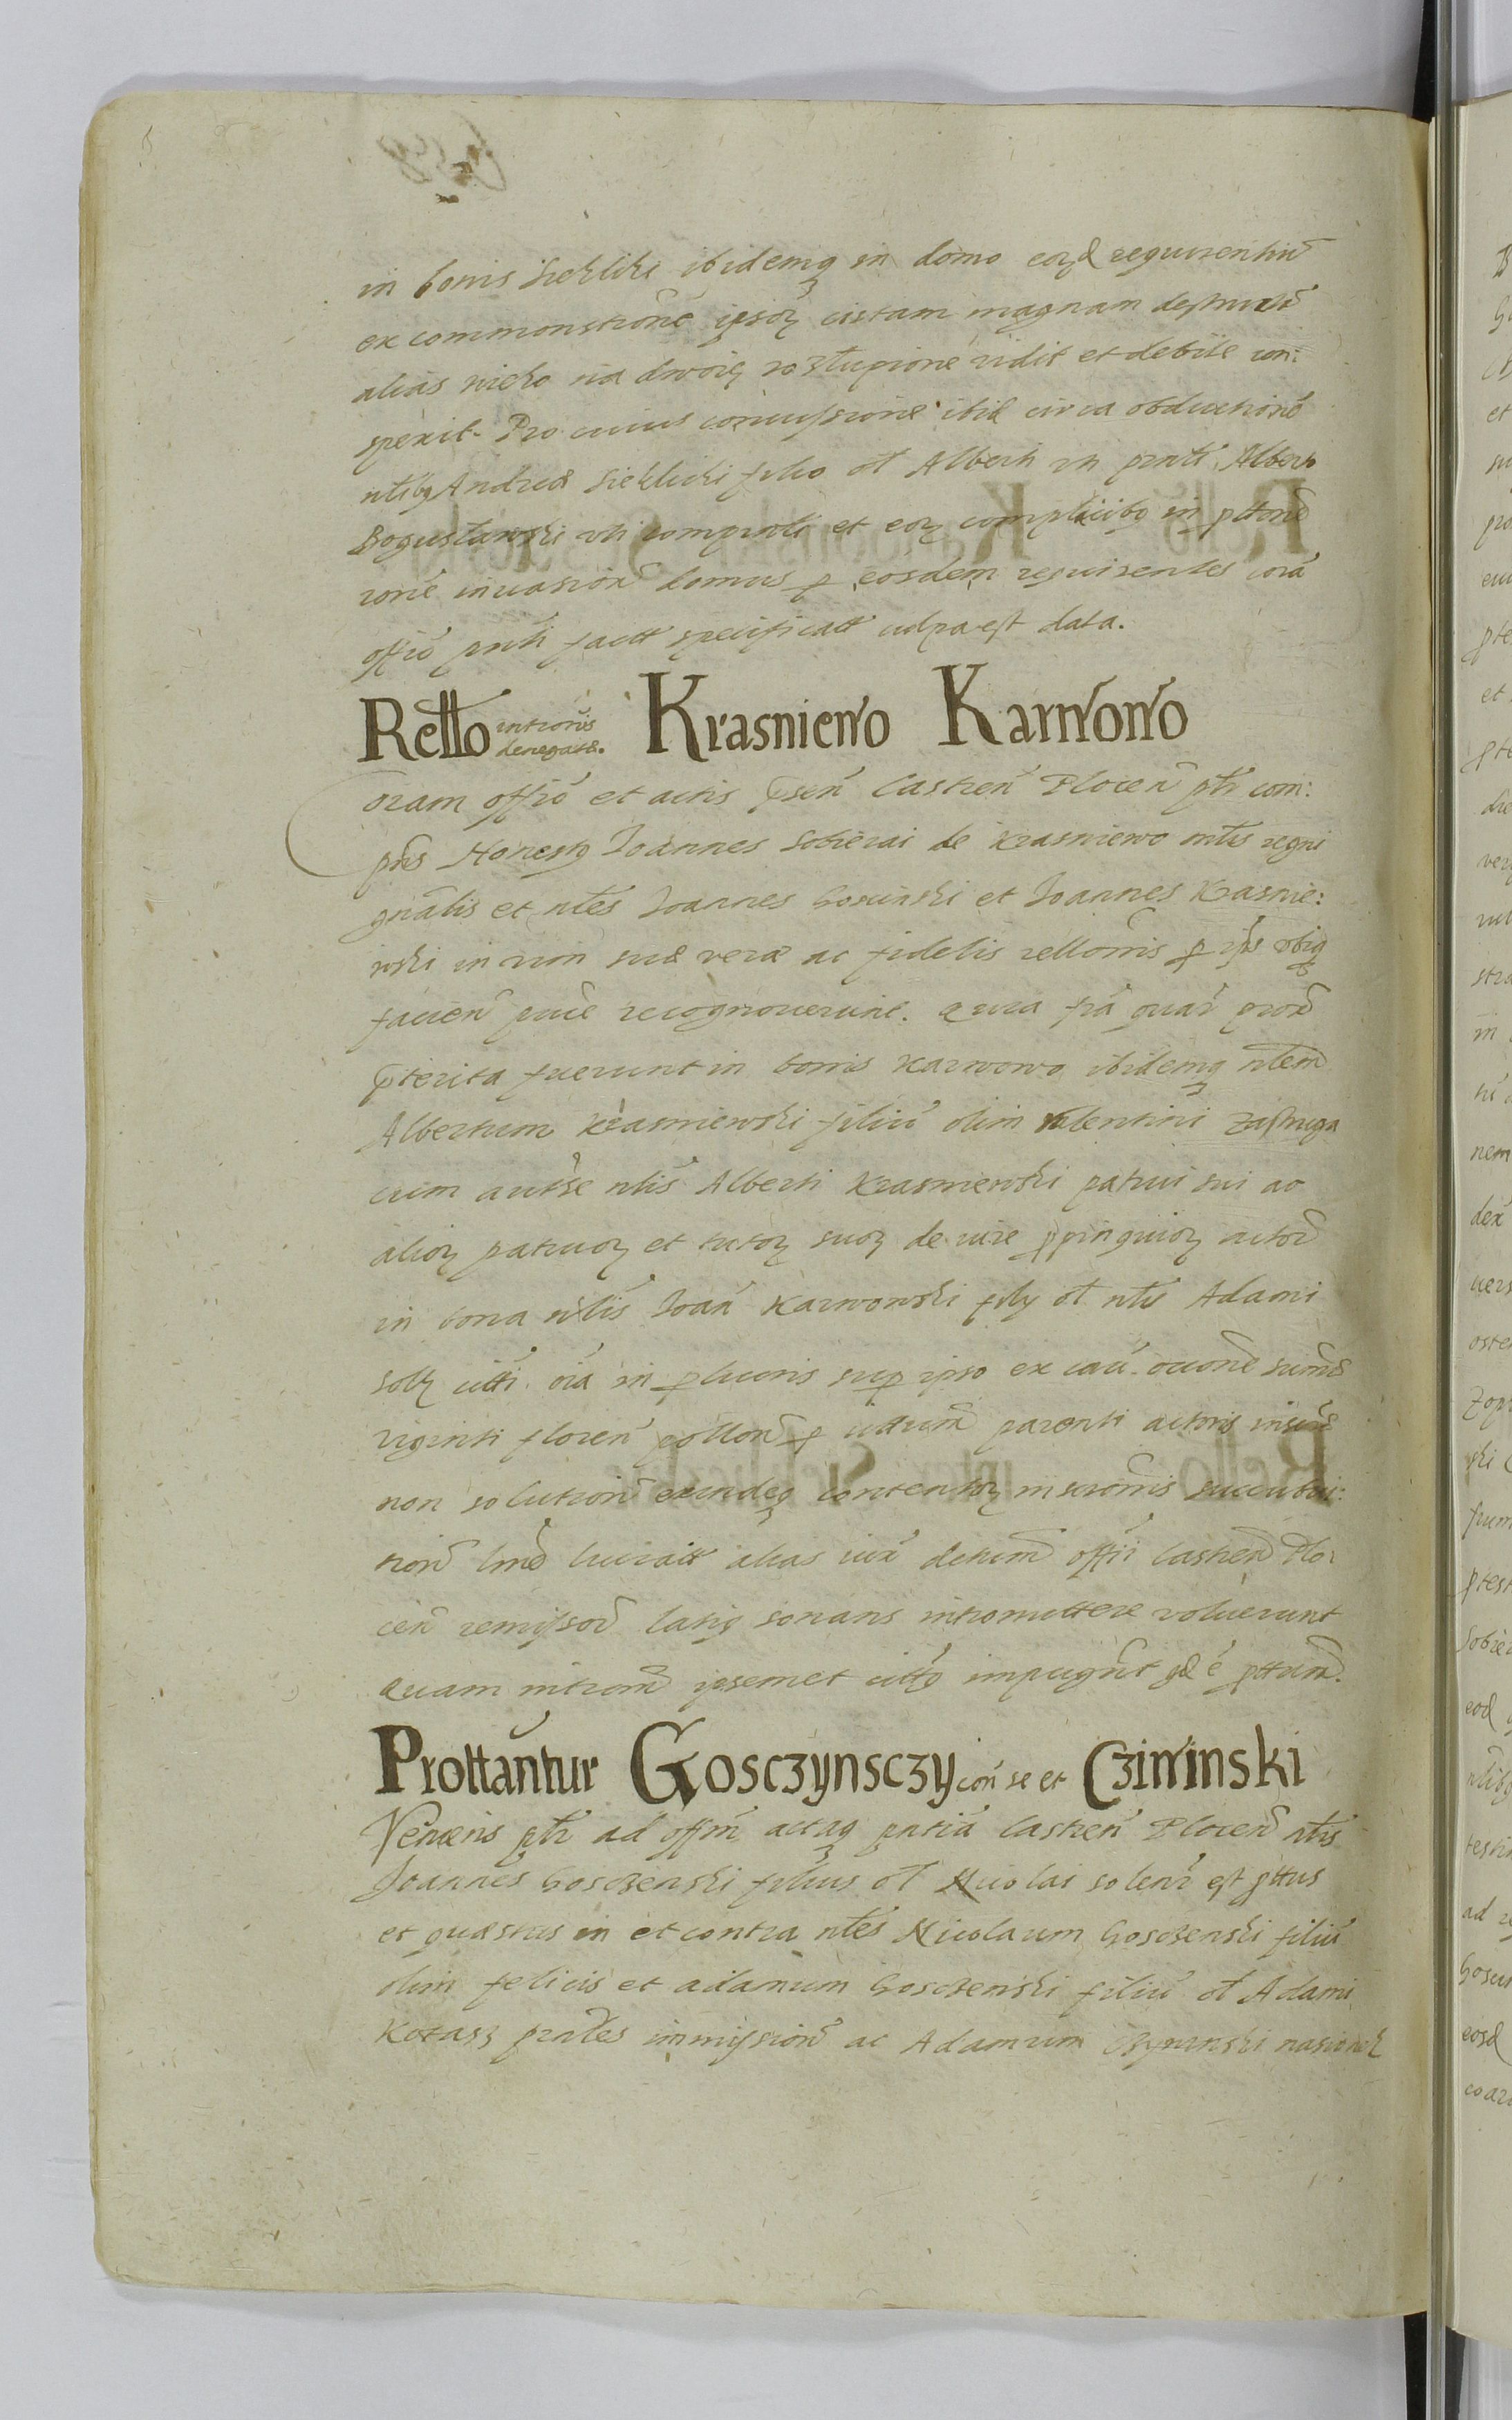 in bonis Siekliki ibidemq in domo eord requirentiu
ex commonstrone ipsor cistam magnam destructa
alias wieko na dwoie rozlupione vidit et debite con:
spexit. Pro cuius concussione ibid circa obductione
ntibq Andreae Sieklicki filio ol Alberti
Boguslawski uti comprnli et eor complicibq in pttone
rone invasion domus p eosdem requirentes cora
offio pnti factt specificatt culpa est data.
Rello introis denegatae. Krasniewo Karwowo
Coram offio et actis psen Castren Plocen ptr com:
pns Honestq Joannes Sobierai de Krasniewo mtis regni
gnalis et ntes Joannes Goscinski et Joannes Krasnie:
wski in vim suae verae ac fidelis rellonis p ips ibiq
facien puce recognoverunt. quia fra quar prox
pterita fuerunt in bonis Karwowo ibidemq ntem
Albertum Krasniewski filiu olim valentini Zastruga
cum authte ntis Alberti Krasniewski patrui sui ac
alior patruor et tutor suor de iure ppinquior actor
in bona ntis Joan Karwowski fily ol ntis Adami
citti oia in p lucris sup ipso ex cau. ouone sumae
viginti floren pollon p citturm parenti actoris
non solution exindeq contentor inscronis succubui:
tion lucratt alias iux detum offii Castren Plo:
cen remissor latiq sonans intromittere voluerunt
quam introm ipsemet cittq impugnt qd e pttum.
Prottantur Gosczynsczy con se et Cziwinski
Veniens ptr ad offm actaq pntia Castren Plocen ntis
Joannes Gosczenski filius ol Nicolai solenr est pttus
et quaestus in et contra ntes Nicolaum Gosczenski filiu
olim felicis et adamum Gosczenski filiu ol Adami
Kotasz prnles immission ac Adamum Czywinski